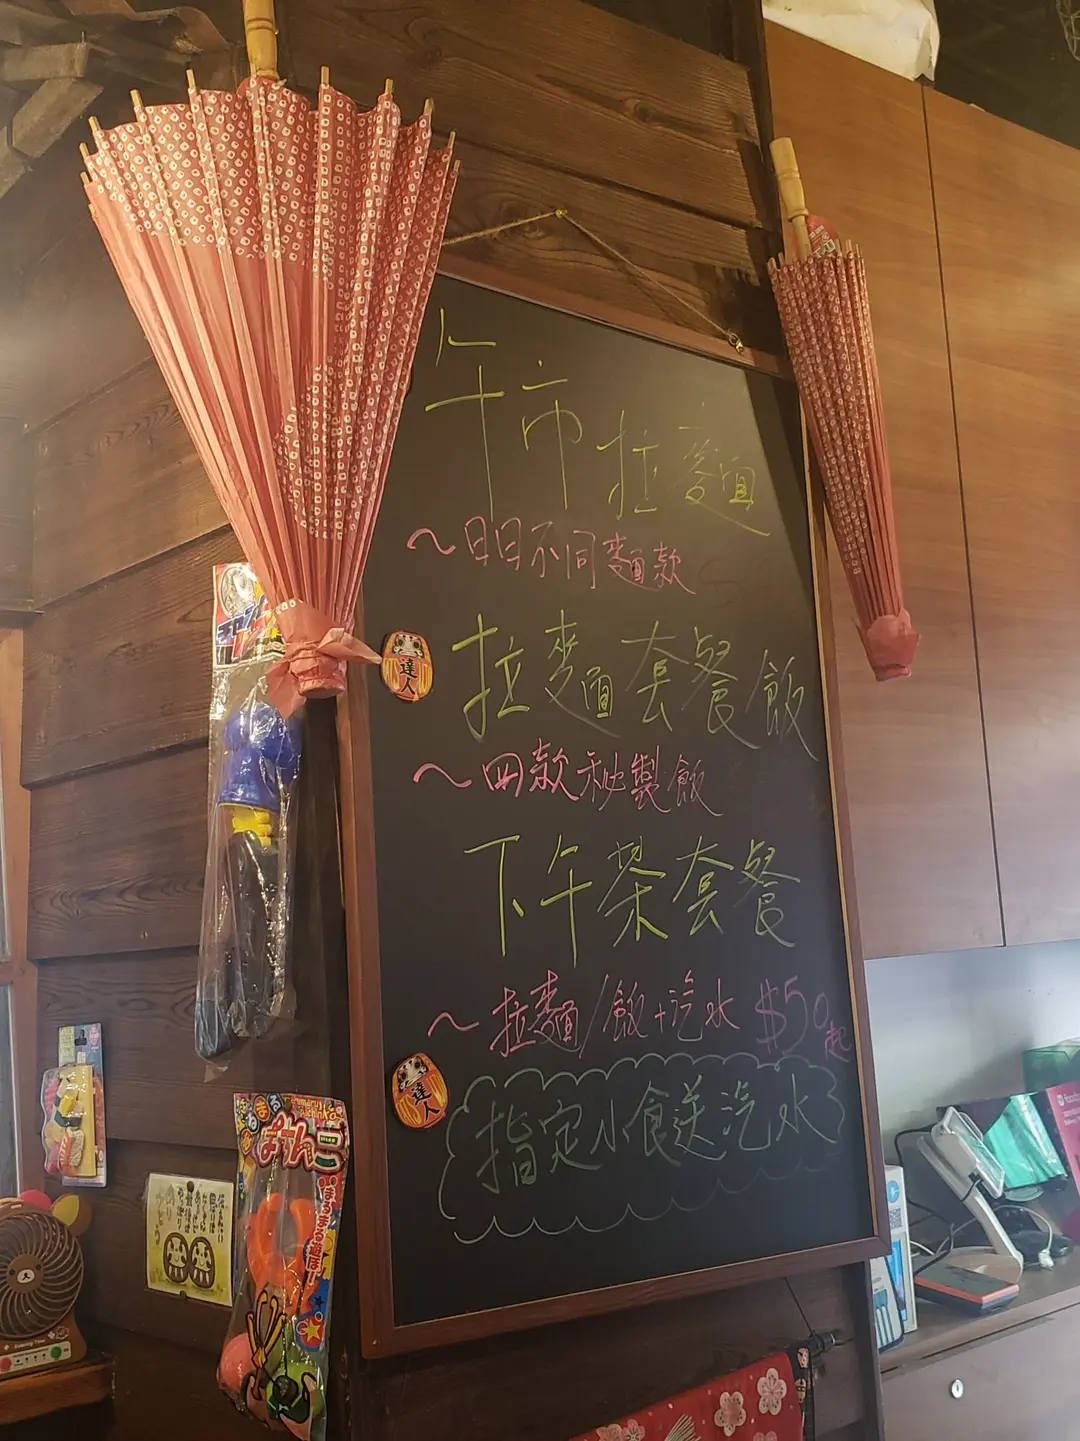 午市拉麵
~日日不同麵款
拉麵套餐飯
~四款秘製飯
下午茶套餐
~拉麵/飯+汽水 $50起
指定小食送汽水
達人
達人